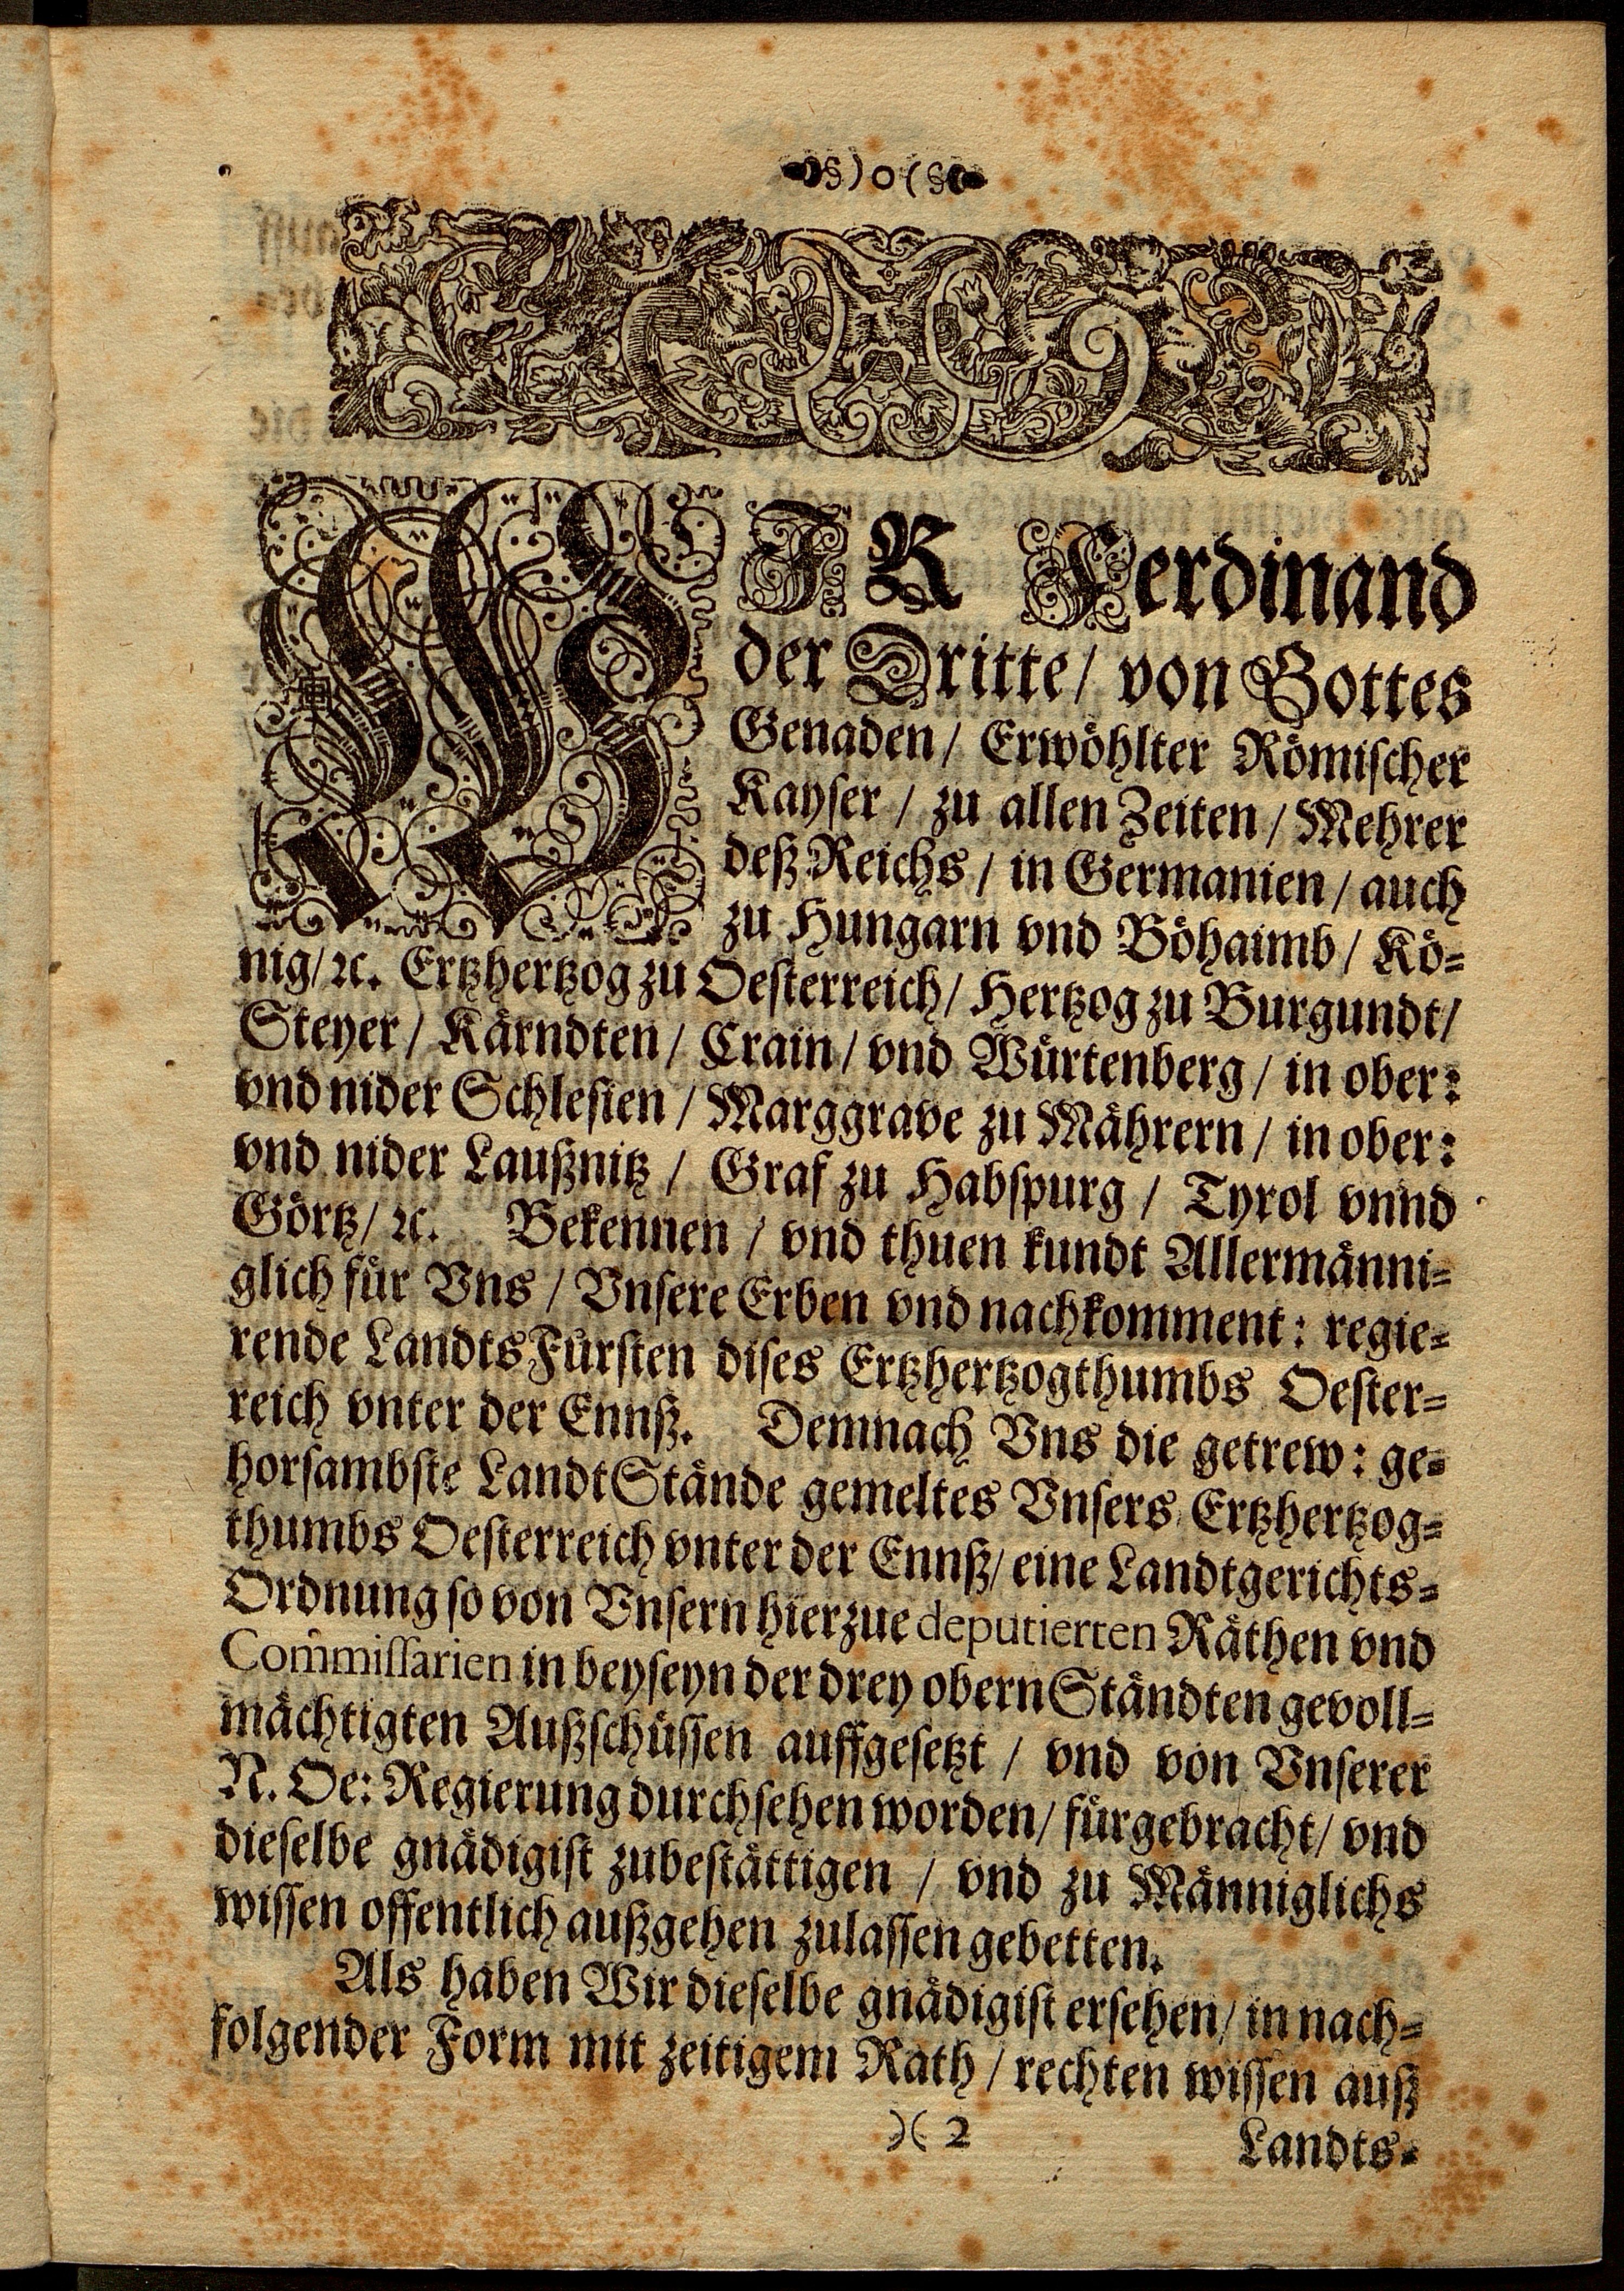 §)o(§
WIR Ferdinand
der Dritte/ von Gottes
Genaden/ Erwöhlter Römischer
Kayser / zu allen Zeiten / Mehrer
deß Reichs / in Germanien / auch
zu Hungarn vnd Böhaimb / Kö-
nig/ ꝛc. Ertzhertzog zu Oesterreich/ Hertzog zu Burgundt/
Steyer / Kärndten / Crain / vnd Würtenberg / in ober:
vnd nider Schlesien / Marggrave zu Mährern / in ober:
vnd nider Laußnitz / Graf zu Habspurg / Tyrol vnnd
Görtz/ ꝛc. Bekennen / vnd thuen kundt Allermänni-
glich für Vns / Vnsere Erben vnd nachkomment: regie-
rende LandtsFürsten dises Ertzhertzogthumbs Oester-
reich vnter der Ennß. Demnach Vns die getrew: ge-
horsambste LandtStände gemeltes Vnsers Ertzhertzog-
thumbs Oesterreich vnter der Ennß/ eine Landtgerichts-
Ordnung so von Vnsern hierzue deputierten Räthen vnd
Com̃missarien in beyseyn der drey obern Ständten gevoll-
mächtigten Außschüssen auffgesetzt / vnd von Vnserer
N. Oe: Regierung durchsehen worden/ fürgebracht/ vnd
dieselbe gnädigist zubestättigen / vnd zu Männiglichs
wissen offentlich außgehen zulassen gebetten.
Als haben Wir dieselbe gnädigist ersehen/ in nach-
folgender Form mit zeitigem Rath / rechten wissen auß
)( 2
Landts-